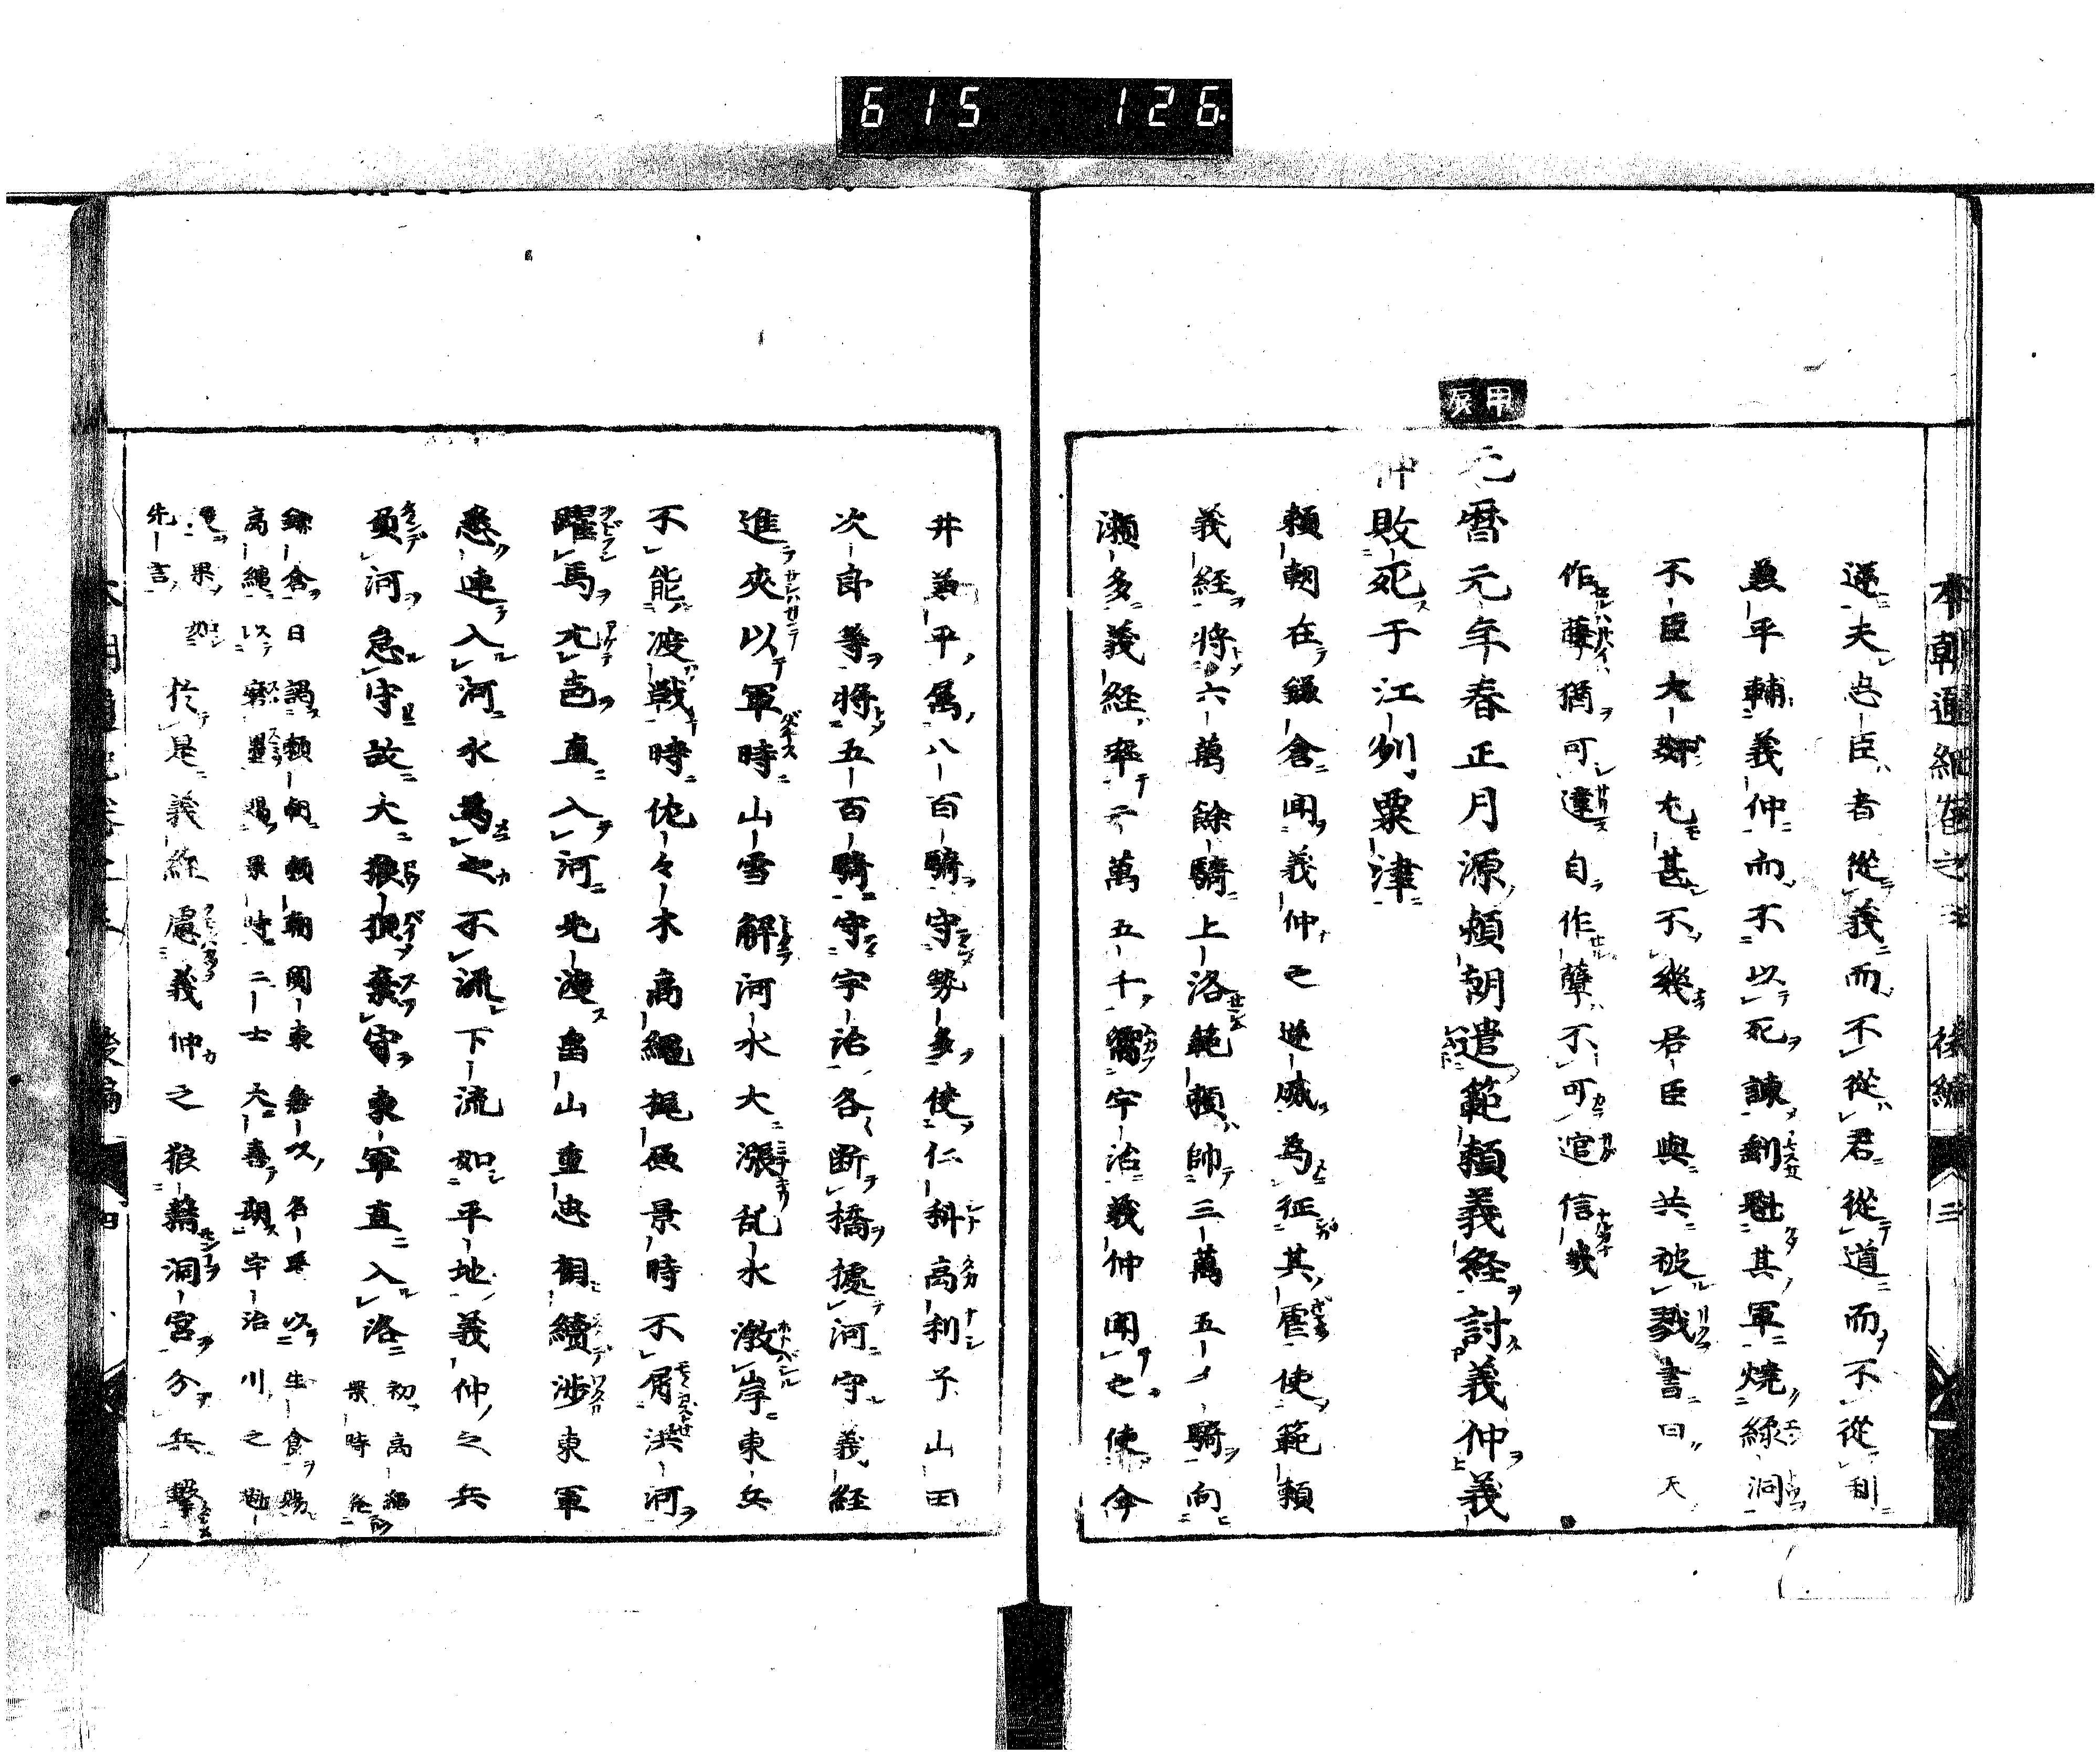 615 126.
本朝通紀卷之 後編 三
逆夫忠臣者從義而不從君從道而不從利
兼平輔義仲而不以死諫剰魁其軍燒緑洞
不臣大邪尢甚不幾君臣與共被戮書曰天
作孽猶可違自作孽不可逭信哉
甲辰
元暦元年春正月源頼朝遣範頼義経討義仲義
仲敗死于江州粟津
頼朝在鎌倉聞義仲之逆威為征其虐使範頼
義経將六萬餘騎上洛範頼帥三萬五千騎向
瀬多義経率二萬五千嚮宇治義仲聞之使今
井兼平為八百騎守勢多使仁科高利予山田
次郎等將五百騎守宇治各断橋據河守義経
進夾以軍時山雪解河水大漲乱水激岸東兵
不能渡戦時佐々木高綱梶原景時不屑洪河
躍馬尢直入河先渡畠山重忠相續渉東軍
悉連入河水為之不流下流如平地義仲之兵
負河急守故大狼狽棄守東軍直入洛 初高綱景時
鎌倉日謁頼朝頼朝関東無以名馬以生食賜
高綱以磨墨賜景時二士大喜期宇治川之
果如
先言 於是義経慮義仲之狼藉洞宮分兵撃